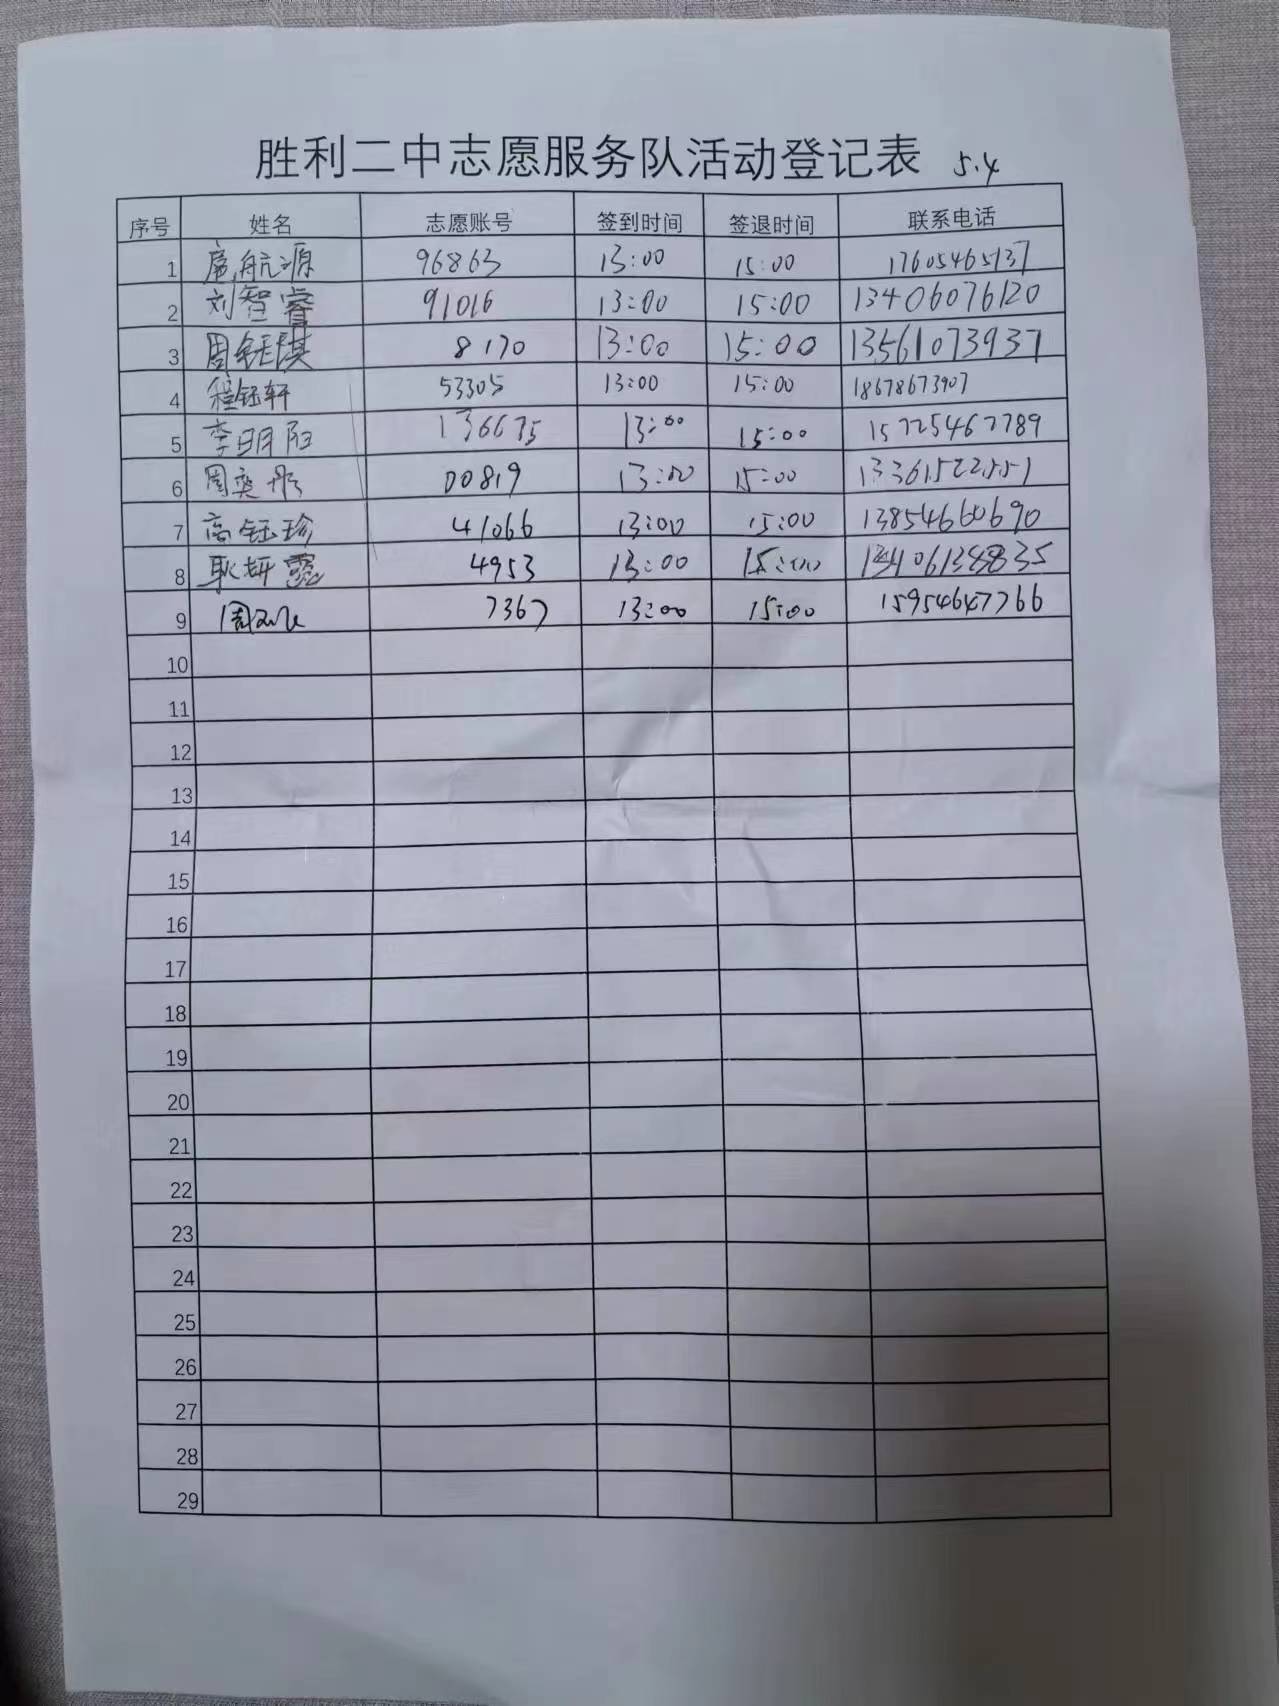 胜利二中志愿服务队活动登记表 5.4
序号 姓名 志愿账号 签到时间 签退时间 联系电话
1 扈航源 96863 13:00 15:00 17605465137
2 刘智睿 91016 13:00 15:00 13406076120
3 周钰淇 8170 13:00 15:00 13561073937
4 程钰轩 53305 13:00 15:00 18678673907
5 李明阳 136675 13:00 15:00 15725467789
6 周奕彤 00819 13:00 15:00 13361522551
7 高钰珍 41066 13:00 15:00 13854660690
8 耿妍露 4953 13:00 15:00
9 7367 13:00 15:00 15954647766
10
11
12
13
14
15
16
17
18
19
20
21
22
23
24
25
26
27
28
29